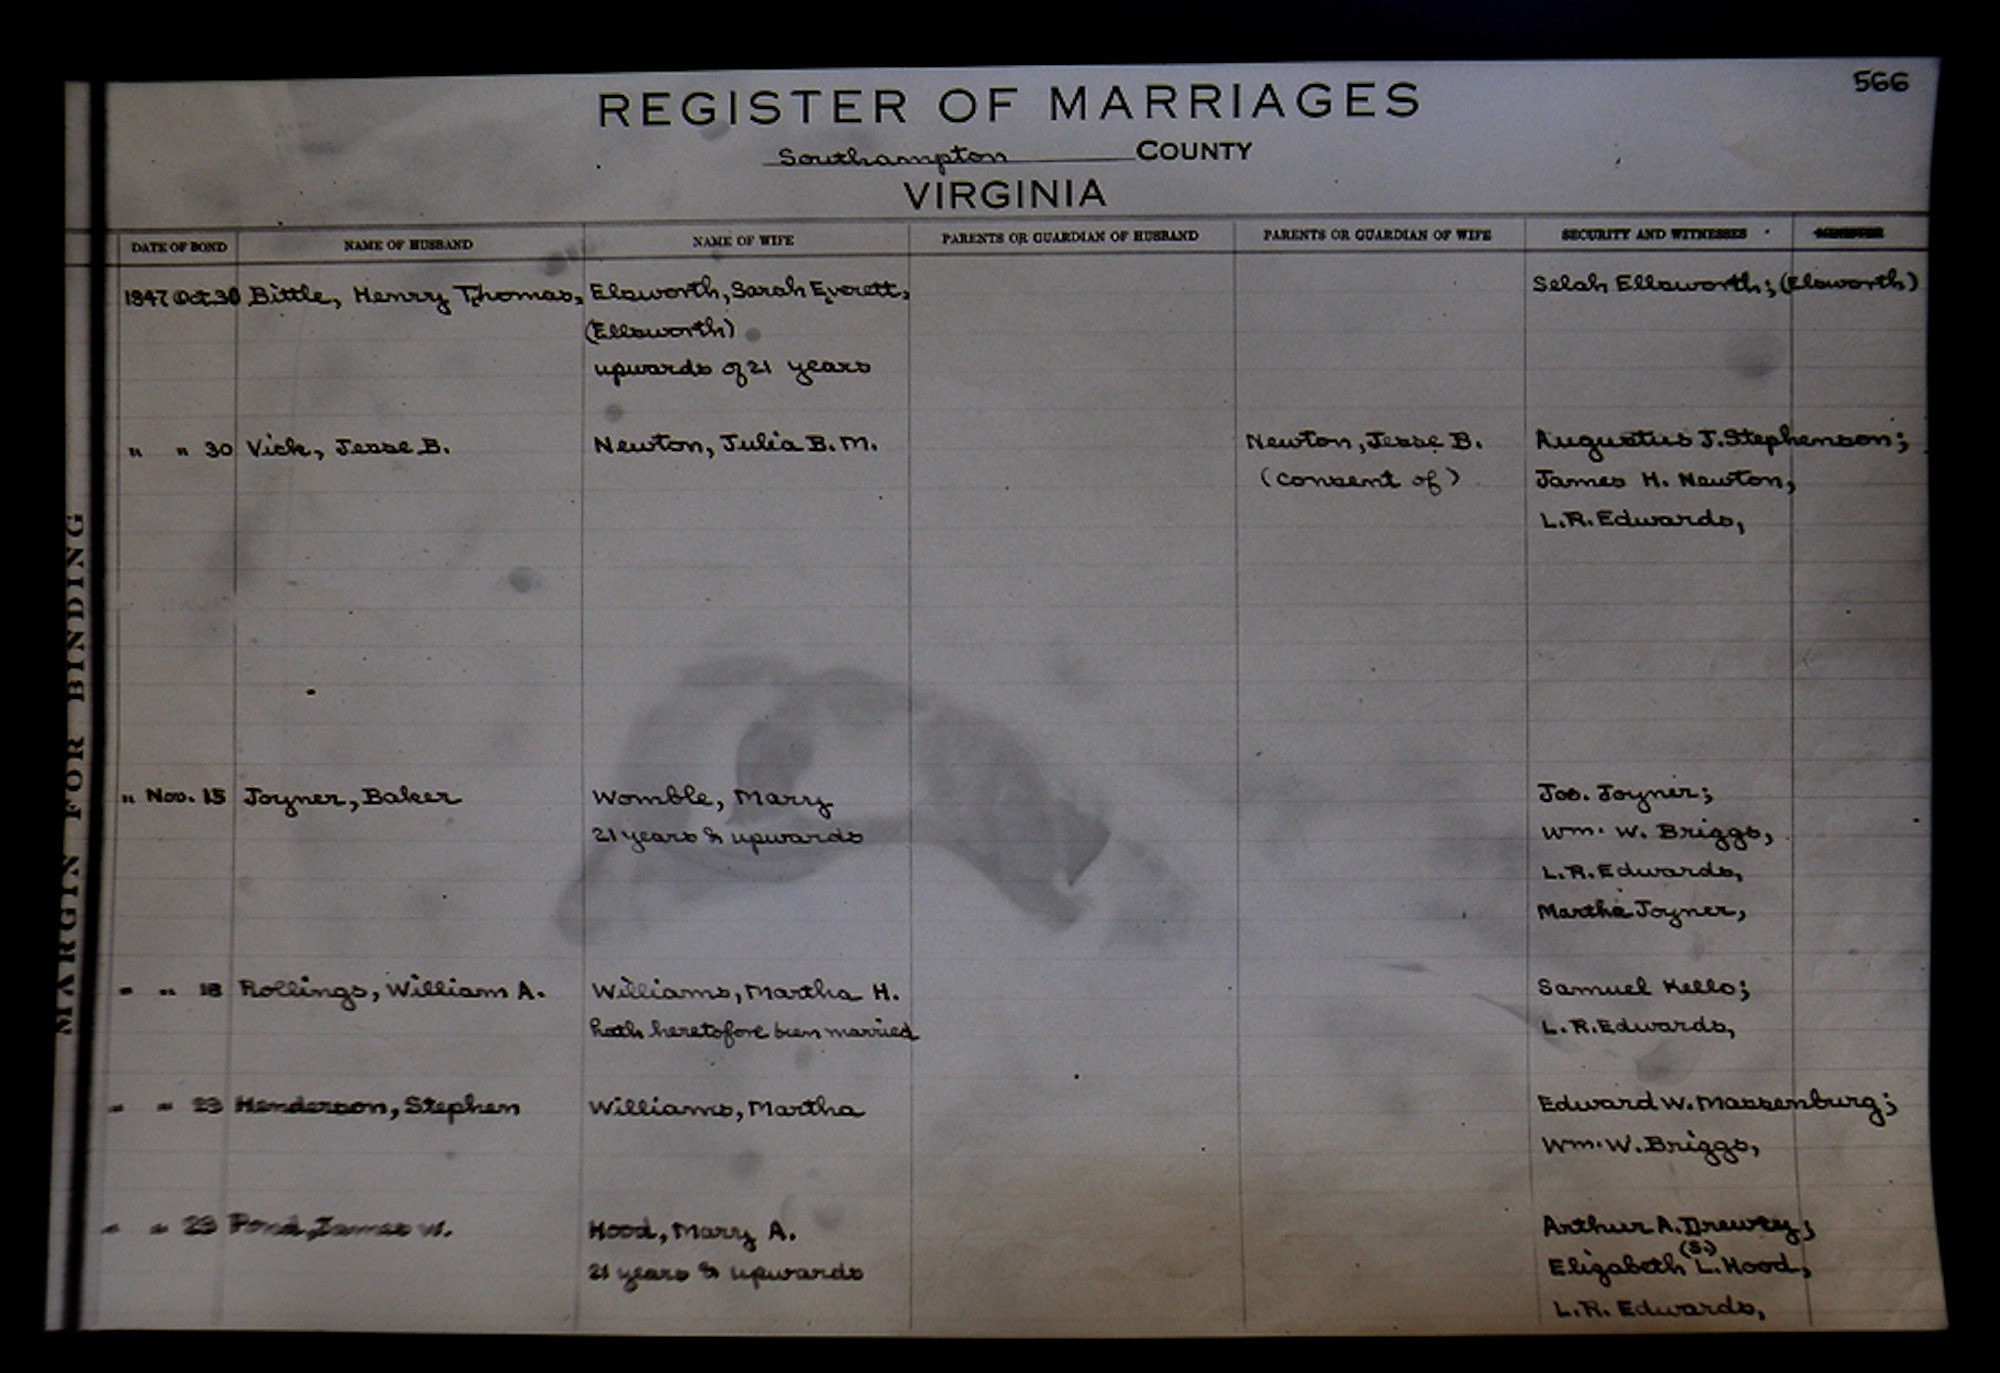 566
REGISTER OF MARRIAGES
Southampton COUNTY
VIRGINIA
DATE OF BOND NAME OF HUSBAND NAME OF WIFE PARENTS OR GUARDIAN OF HUSBAND PARENTS OR GUARDIAN OF WIFE SECURITY AND WITNESSES MINISTER
1847 Oct 30 Bittle, Henry Thomas, Elsworth, Sarah Everett, Selah Ellsworth; (Elsworth)
(Ellsworth)
upwards of 21 years
" " 30 Vick, Jesse B. Newton, Julia B. M. Newton, Jesse B. Augustus J. Stephenson;
(consent of) James H. Newton,
L.R. Edwards,
" Nov. 15 Joyner, Baker Womble, Mary Jos. Joyner;
21 years & upwards Wm. W. Briggs,
L.R. Edwards,
Martha Joyner,
" " 18 Rollings, William A. Williams, Martha H. Samuel Kello;
hath heretofore been married L.R. Edwards,
" " 23 Henderson, Stephen Williams, Martha Edward W. Massenburg;
Wm. W. Briggs,
" " 23 Pond, James W. Hood, Mary A. Arthur A. Drewry;
(S.)
21 years & upwards Elizabeth L. Hood,
L.R. Edwards,
MARGIN FOR BINDING